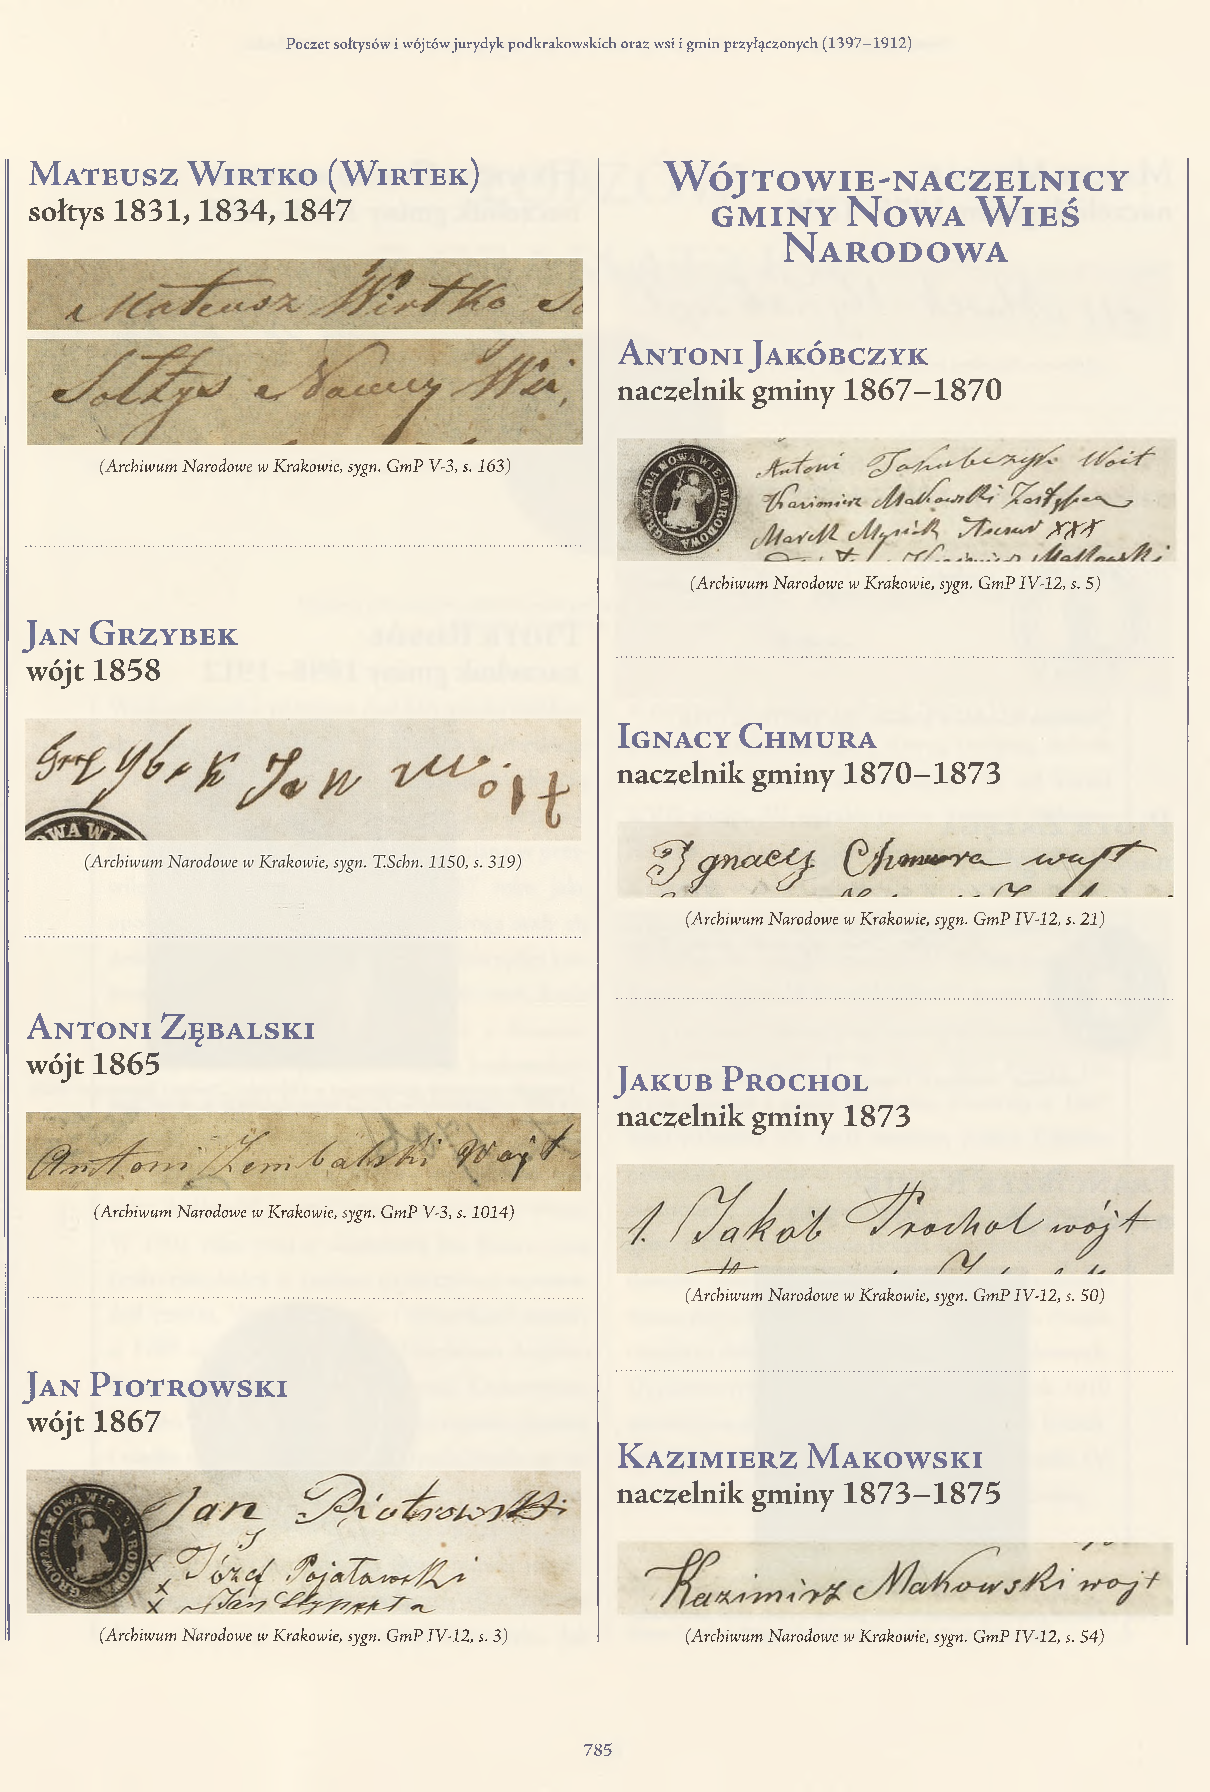 Poczet sołtysów i wójtów jurydyk podkrakowskich oraz wsi i gmin przyłączonych (1397–1912)
Mateusz Wirtko (Wirtek)
sołtys 1831, 1834, 1847
Mateusz Wirtko So
Sołtys Nowey Wsi,
(Archiwum Narodowe w Krakowie, sygn. GmP V-3, s. 163)
Jan Grzybek
wójt 1858
Grzybek Jan wóit
OWA WI
(Archiwum Narodowe w Krakowie, sygn. T.Schn. 1150, s. 319)
Antoni Zębalski
wójt 1865
Antoni Zembalski Wojt
(Archiwum Narodowe w Krakowie, sygn. GmP V-3, s. 1014)
Jan Piotrowski
wójt 1867
Jan Piotrowski
x Józef
x Jan
x
GROMADA NOWA WIEŚ NARODOWA
(Archiwum Narodowe w Krakowie, sygn. GmP IV-12, s. 3)
Wójtowie-naczelnicy
gminy Nowa Wieś
Narodowa
Antoni Jakóbczyk
naczelnik gminy 1867–1870
GROMADA NOWA WIEŚ NARODOWA
Antoni Jakubczyk Wóit
Kazimierz Makowski Zastępca
Marek XXX
Kazimierz Makowski
(Archiwum Narodowe w Krakowie, sygn. GmP IV-12, s. 5)
Ignacy Chmura
naczelnik gminy 1870–1873
Ignacy Chmura wujt
(Archiwum Narodowe w Krakowie, sygn. GmP IV-12, s. 21)
Jakub Prochol
naczelnik gminy 1873
1. Jakób Prochol wójt
(Archiwum Narodowe w Krakowie, sygn. GmP IV-12, s. 50)
Kazimierz Makowski
naczelnik gminy 1873–1875
Kazimirz Makowski wojt
(Archiwum Narodowe w Krakowie, sygn. GmP IV-12, s. 54)
785